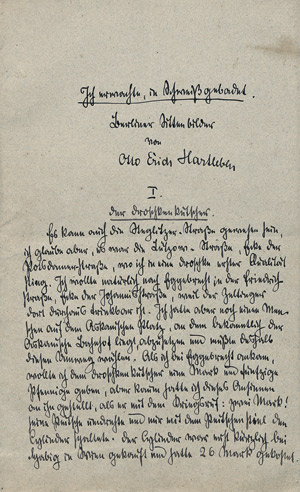 Ich erwachte, in Schweiß gebadet.
Berliner Sittenbilder
von
Otto Erich Hartleben
I.
Der Droschkenkutscher.
Es kann auch die Steglitzer-Straße gewesen sein,
ich glaube aber, es war die Lützow-Straße, Ecke der
Potsdamerstraße, wo ich in eine Droschke erster Qualität
stieg. Ich wollte natürlich nach Eggebrecht in der Friedrich
straße, Ecke der Johannisstraße, weil der
dort durchaus trinkbar ist. Ich hatte aber noch einen Men-
schen auf dem Askanischen Platz, an dem bekanntlich der
Askanische Bahnhof liegt, abzusetzen und mußte deshalb
diesen Umweg machen. Als ich bei Eggebrecht ankam,
wollte ich dem Droschkenkutscher eine Mark und fünfzig
Pfennige geben, aber kaum hatte ich dieses Ansinnen
an ihn gestellt, als er mit dem Kriegsruf: zwei Mark!
seine Peitsche umdrehte und mir mit dem Peitschenstiel den
Cylinder spaltete. Der Cylinder war erst kürzlich bei
in gekauft und hatte 26 Mark gekostet.